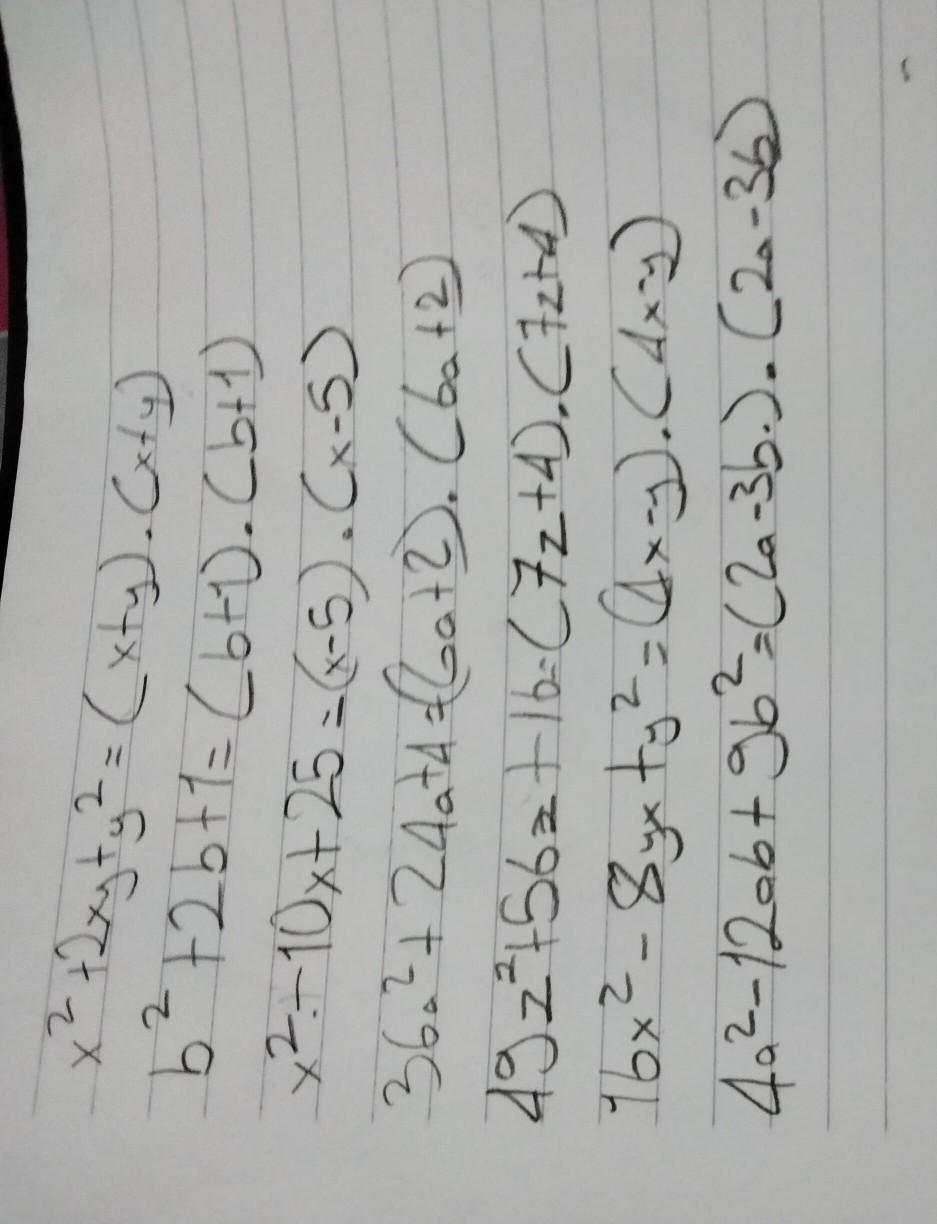 x² + 2xy + y² = (x+y).(x+y)
b² + 2b + 1 = (b+1).(b+1)
x² - 10x + 25 = (x-5).(x-5)
36a² + 24a + 4 = (6a+2).(6a+2)
49z² + 56z + 16 = (7z+4).(7z+4)
16x² - 8yx + y² = (4x-y).(4x-y)
4a² - 12ab + 9b² = (2a-3b.).(2a-3b)